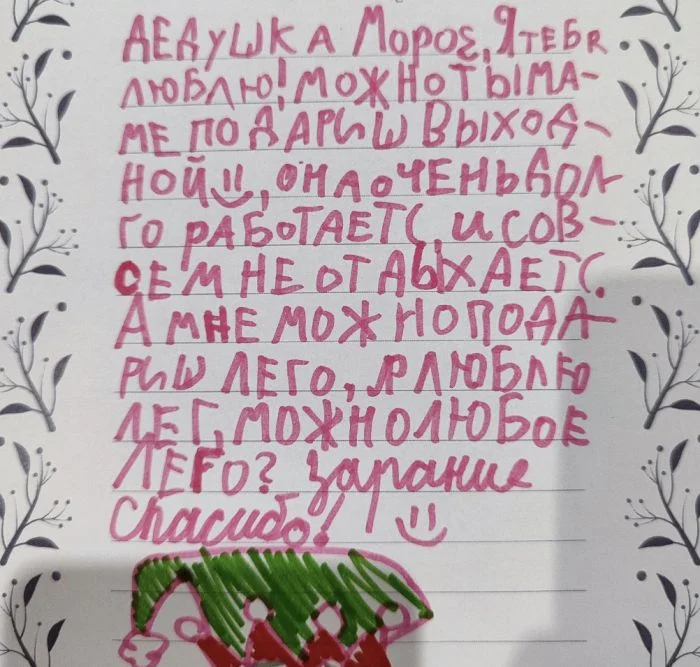 ДЕДУШКА Мороз, Я ТЕБЯ
ЛЮБЛЮ! МОЖНО ТЫ МА-
МЕ ПОДАРИШ ВЫХОД-
НОЙ, ОНА ОЧЕНЬ ДОЛ-
ГО РАБОТАЕТ, И СОВ-
СЕМ НЕ ОТДЫХАЕТ.
А МНЕ МОЖНО ПОДА-
РИШ ЛЕГО, Я ЛЮБЛЮ
ЛЕГ, МОЖНО ЛЮБОЕ
ЛЕГО? Зарание
Спасибо!